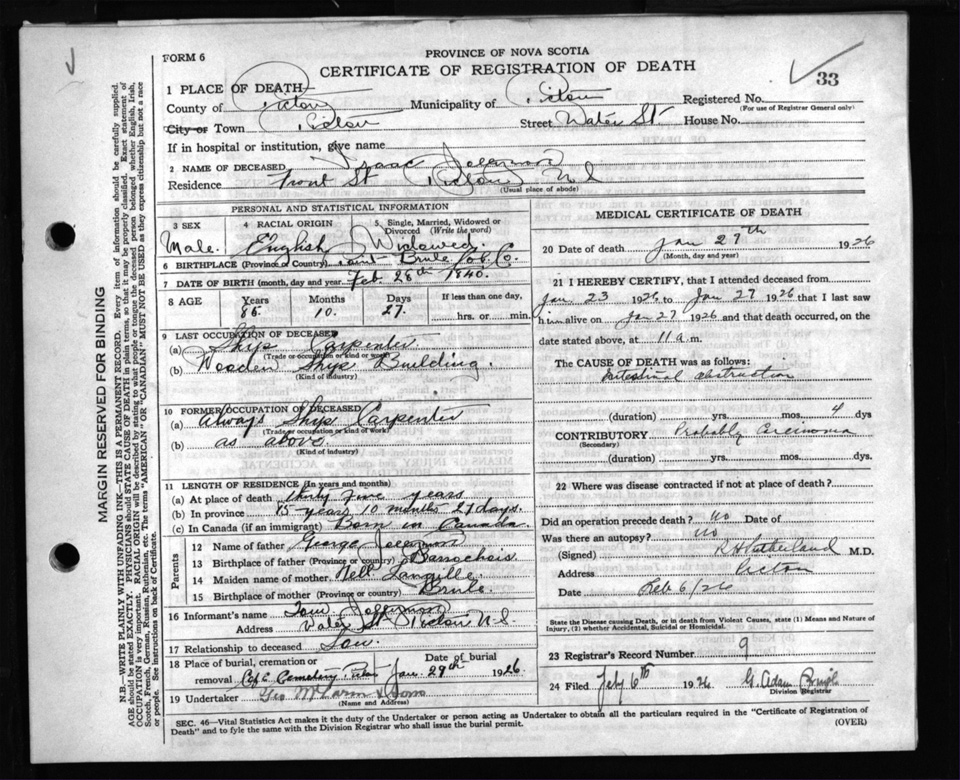 PROVINCE OF NOVA SCOTIA
FORM 6
CERTIFICATE OF REGISTRATION OF DEATH
33
1 PLACE OF DEATH
County of Pictou Municipality of Pictou Registered No.
(For use of Registrar General only)
City or Town Pictou Street Water St. House No.
If in hospital or institution, give name
2 NAME OF DECEASED Isaac Jefferson
Residence Front St Pictou N.S
(Usual place of abode)
PERSONAL AND STATISTICAL INFORMATION
3 SEX 4 RACIAL ORIGIN 5 Single, Married, Widowed or Divorced (Write the word)
Male. English Widower.
6 BIRTHPLACE (Province or Country) Brule Col. Co.
7 DATE OF BIRTH (month, day and year) Feb. 28th 1840.
8 AGE Years Months Days If less than one day,
85. 10. 27. hrs. or min.
9 LAST OCCUPATION OF DECEASED
(a) Ship Carpenter
(Trade or occupation or kind of work)
(b) Wooden Ship Building.
(Kind of industry)
10 FORMER OCCUPATION OF DECEASED
(a) Always Ship Carpenter
(Trade or occupation or kind of work)
(b) as above.
(Kind of industry)
11 LENGTH OF RESIDENCE (In years and months)
(a) At place of death thirty five years
(b) In province 85 years 10 months 27 days.
(c) In Canada (if an immigrant) Born in Canada.
Parents
12 Name of father George Jefferson
13 Birthplace of father (Province or country)
14 Maiden name of mother Nell Langille.
15 Birthplace of mother (Province or country) Brule.
16 Informant's name Jefferson
Address Water St Pictou N.S
17 Relationship to deceased Son.
18 Place of burial, cremation or Date of burial
removal Cemetery. Pictou Jan. 29th 1926.
19 Undertaker Geo & Sons
(Name and Address)
MEDICAL CERTIFICATE OF DEATH
20 Date of death Jan 27th 1926
(Month, day and year)
21 I HEREBY CERTIFY, that I attended deceased from
Jan 23 1926 to Jan 27 1926 that I last saw
him alive on Jan 27 1926 and that death occurred, on the
date stated above, at 11 a.m.
The CAUSE OF DEATH was as follows:
Intestinal obstruction
(duration) yrs. mos. 4 dys
CONTRIBUTORY Probably Carcinoma
(Secondary)
(duration) yrs. mos. dys.
22 Where was disease contracted if not at place of death?
Did an operation precede death? no Date of
Was there an autopsy? no
(Signed) R H Sutherland M.D.
Address Pictou
Date Feb 6/26
State the Disease causing Death, or in death from Violent Causes, state (1) Means and Nature of Injury, (2) whether Accidental, Suicidal or Homicidal.
23 Registrar's Record Number 9
24 Filed Feby 6th 1926 G. Adam
Division Registrar
SEC. 46—Vital Statistics Act makes it the duty of the Undertaker or person acting as Undertaker to obtain all the particulars required in the "Certificate of Registration of
Death" and to fyle the same with the Division Registrar who shall issue the burial permit. (OVER)
MARGIN RESERVED FOR BINDING
N.B.—WRITE PLAINLY WITH UNFADING INK—THIS IS A PERMANENT RECORD. Every item of information should be carefully supplied.
AGE should be stated EXACTLY. PHYSICIANS should STATE CAUSE OF DEATH in plain terms, so that it may be properly classified. Exact statement of
OCCUPATION is very important. RACIAL ORIGIN will be described by stating to what people or tongue the deceased person belonged whether English, Irish,
Scotch, French, German, Russian, Ruthenian, etc. The terms "AMERICAN" or "CANADIAN" MUST NOT BE USED as they express citizenship but not a race
or people. See instructions on back of Certificate.